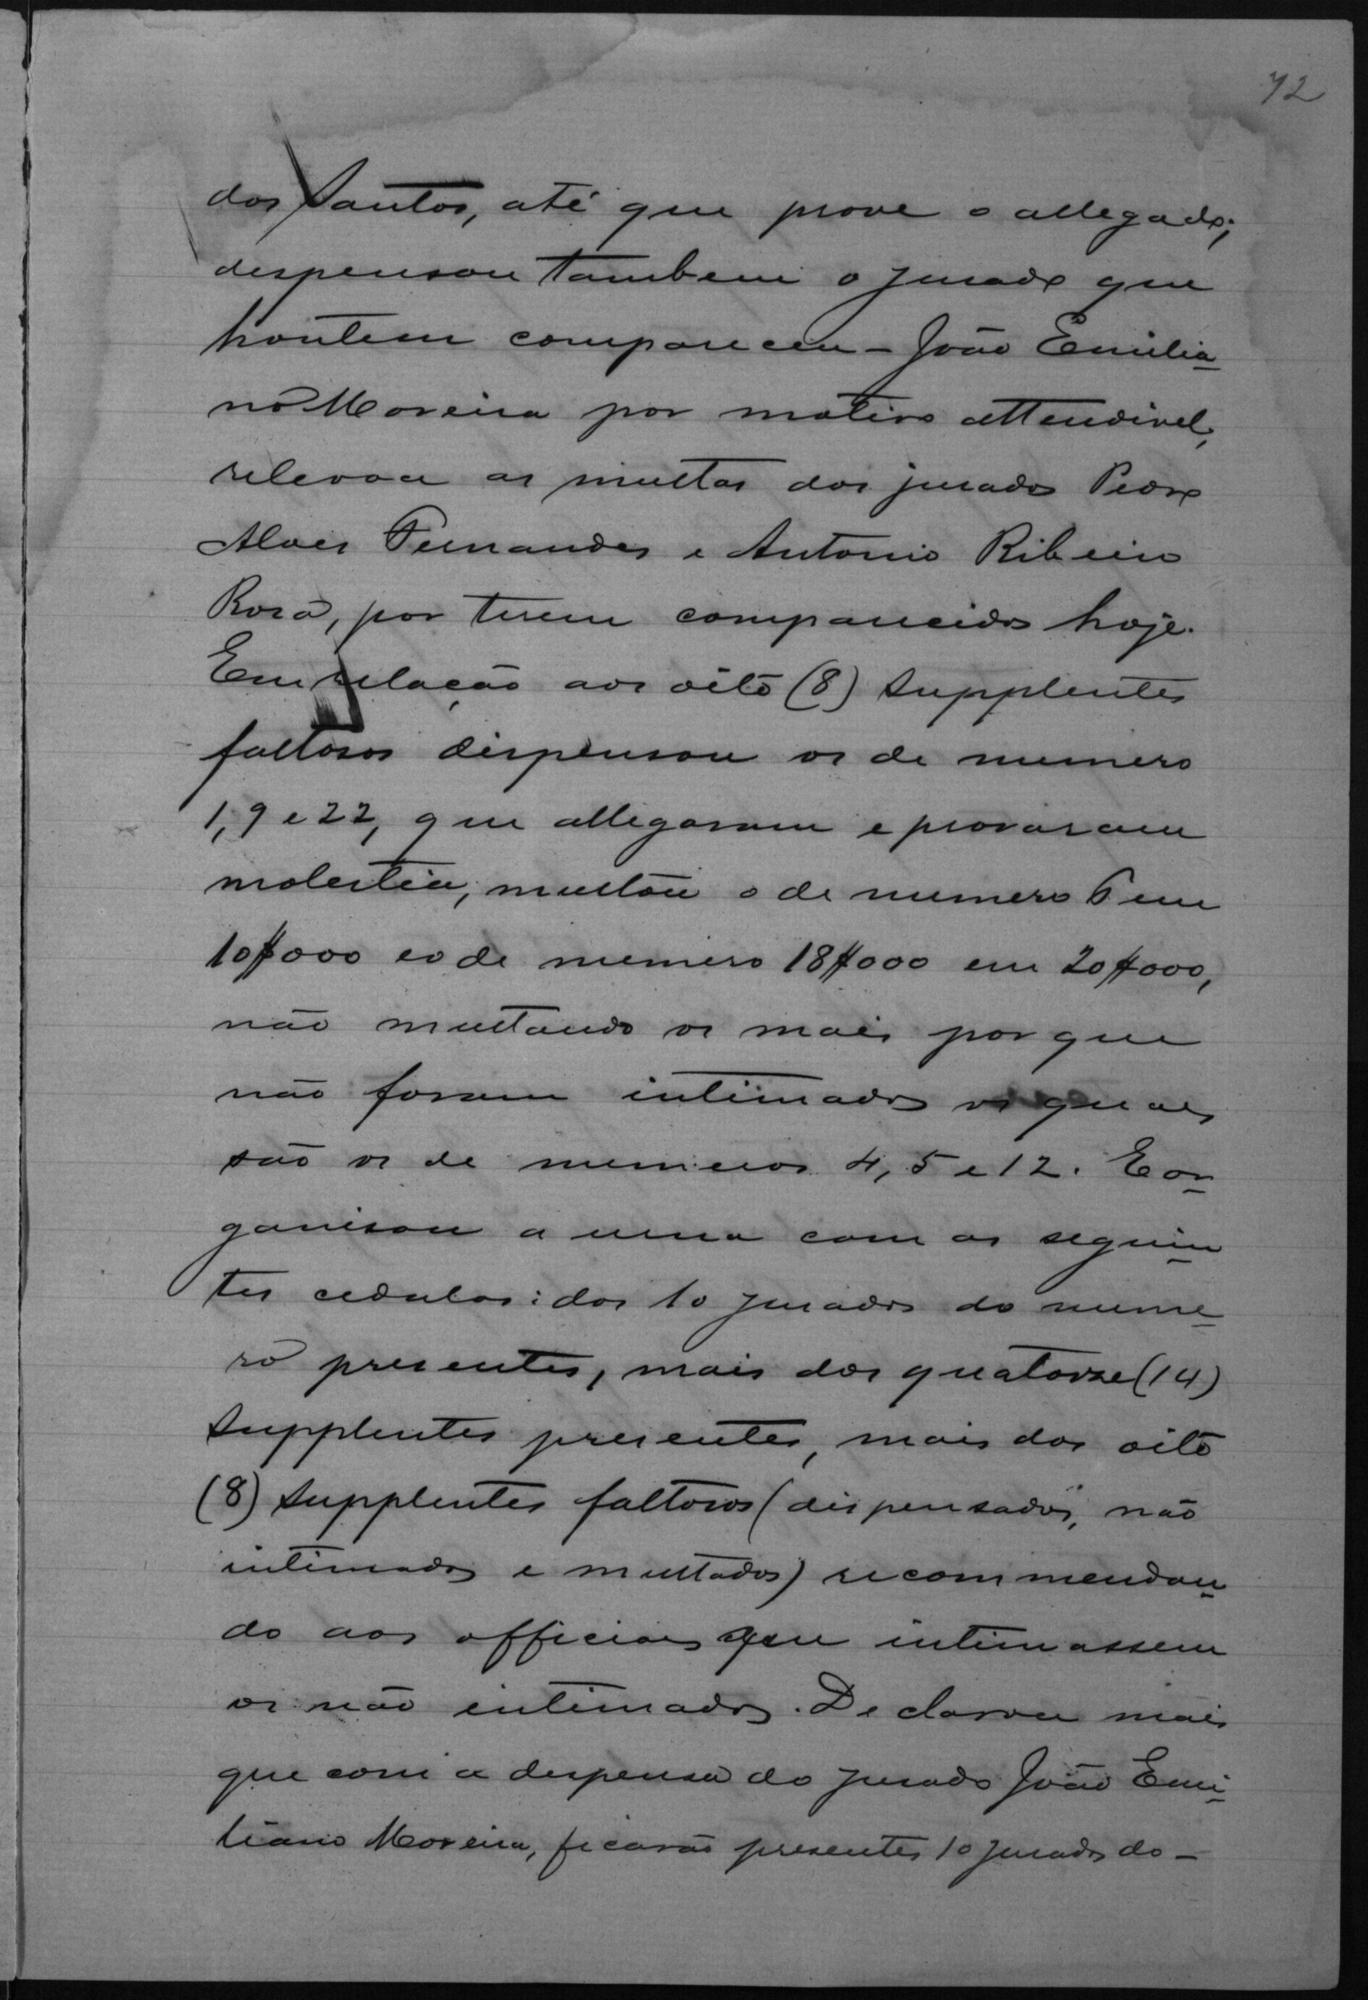 72
dos Santos, até que prove o allegado;
dispensou tambem o jurado que
hontem compareceu – João Emilia-
no Moreira por motivo attendivel,
relevou as multas dos jurados Pedro
Alves Fernandes e Antonio Ribeiro
Rosa, por terem comparecido hoje.
Em relação aos oito (8) supplentes
faltosos dispensou os de numero
1, 9 e 22, que allegaram e provaram
molestia; multou o de numero 6 em
10$000 e o de numero 18$000 em 20$000,
não multando os mais por que
não foram intimados os quaes
são os de numeros 4, 5 e 12. E or-
ganisou a urna com as seguin-
tes cedulas: dos 10 jurados do nume-
ro presentes, mais dos quatorze (14)
supplentes presentes, mais dos oito
(8) supplentes faltosos (dispensados, não
intimados e multados) recommendan-
do aos officiaes que intimassem
os não intimados. Declarou mais
que com a despensa do jurado João Emi-
liano Moreira, ficarão presentes 10 jurados do –